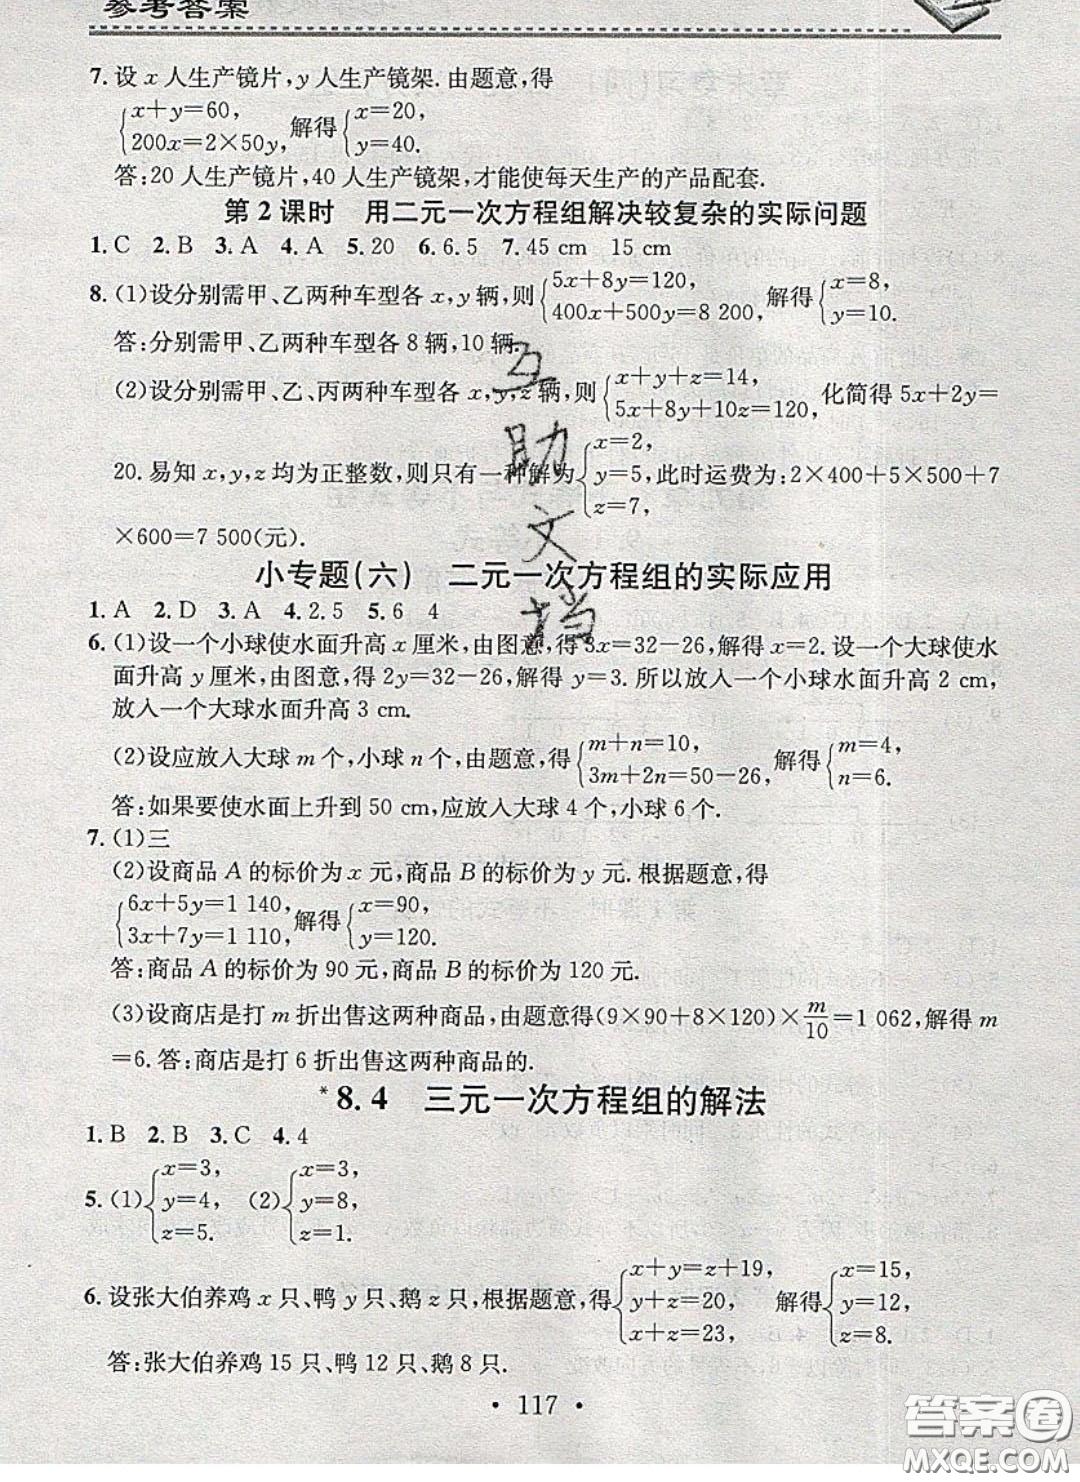 参考答案
7. 设 x 人生产镜片, y 人生产镜架. 由题意, 得
{x+y=60, 200x=2×50y, 解得{x=20, y=40.
答:20 人生产镜片,40 人生产镜架,才能使每天生产的产品配套.
第 2 课时 用二元一次方程组解决较复杂的实际问题
1. C 2. B 3. A 4. A 5. 20 6. 6.5 7. 45 cm 15 cm
8. (1)设分别需甲、乙两种车型各 x,y 辆,则{5x+8y=120, 400x+500y=8 200, 解得{x=8, y=10.
答:分别需甲、乙两种车型各 8 辆,10 辆.
(2)设分别需甲、乙、丙两种车型各 x,y,z 辆,则{x+y+z=14, 5x+8y+10z=120, 化简得 5x+2y=
20. 易知 x,y,z 均为正整数,则只有一种解为{x=2, y=5, z=7, 此时运费为:2×400+5×500+7
×600=7 500(元).
小专题(六) 二元一次方程组的实际应用
1. A 2. D 3. A 4. 2.5 5. 6 4
6. (1)设一个小球使水面升高 x 厘米,由图意,得 3x=32-26,解得 x=2. 设一个大球使水
面升高 y 厘米,由图意,得 2y=32-26,解得 y=3. 所以放入一个小球水面升高 2 cm,
放入一个大球水面升高 3 cm.
(2)设应放入大球 m 个,小球 n 个,由题意,得{m+n=10, 3m+2n=50-26, 解得{m=4, n=6.
答:如果要使水面上升到 50 cm,应放入大球 4 个,小球 6 个.
7. (1)三
(2)设商品 A 的标价为 x 元,商品 B 的标价为 y 元. 根据题意,得
{6x+5y=1 140, 3x+7y=1 110, 解得{x=90, y=120.
答:商品 A 的标价为 90 元,商品 B 的标价为 120 元.
(3)设商店是打 m 折出售这两种商品,由题意得(9×90+8×120)×m/10=1 062,解得 m
=6. 答:商店是打 6 折出售这两种商品的.
*8.4 三元一次方程组的解法
1. B 2. B 3. C 4. 4
5. (1){x=3, y=4, z=5. (2){x=3, y=8, z=1.
6. 设张大伯养鸡 x 只、鸭 y 只、鹅 z 只,根据题意,得{x+y=z+19, y+z=20, x+z=23, 解得{x=15, y=12, z=8.
答:张大伯养鸡 15 只、鸭 12 只、鹅 8 只.
• 117 •
互助文档
答案圈
MXQE.COM